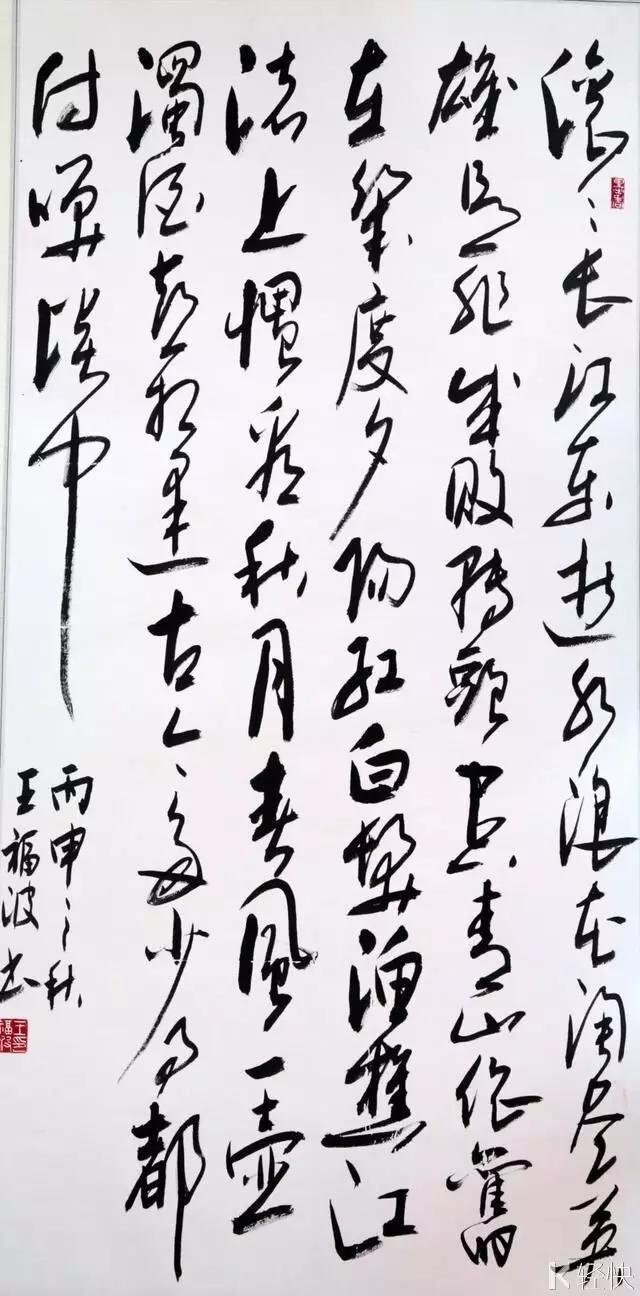 滚々长江东逝水浪花淘尽英
雄是非成败转头空青山依旧
在几度夕阳红白发渔樵江
渚上惯看秋月春风一壶
浊酒喜相逢古今之多少事都
付笑谈中
丙申之秋
王福波书
轻快